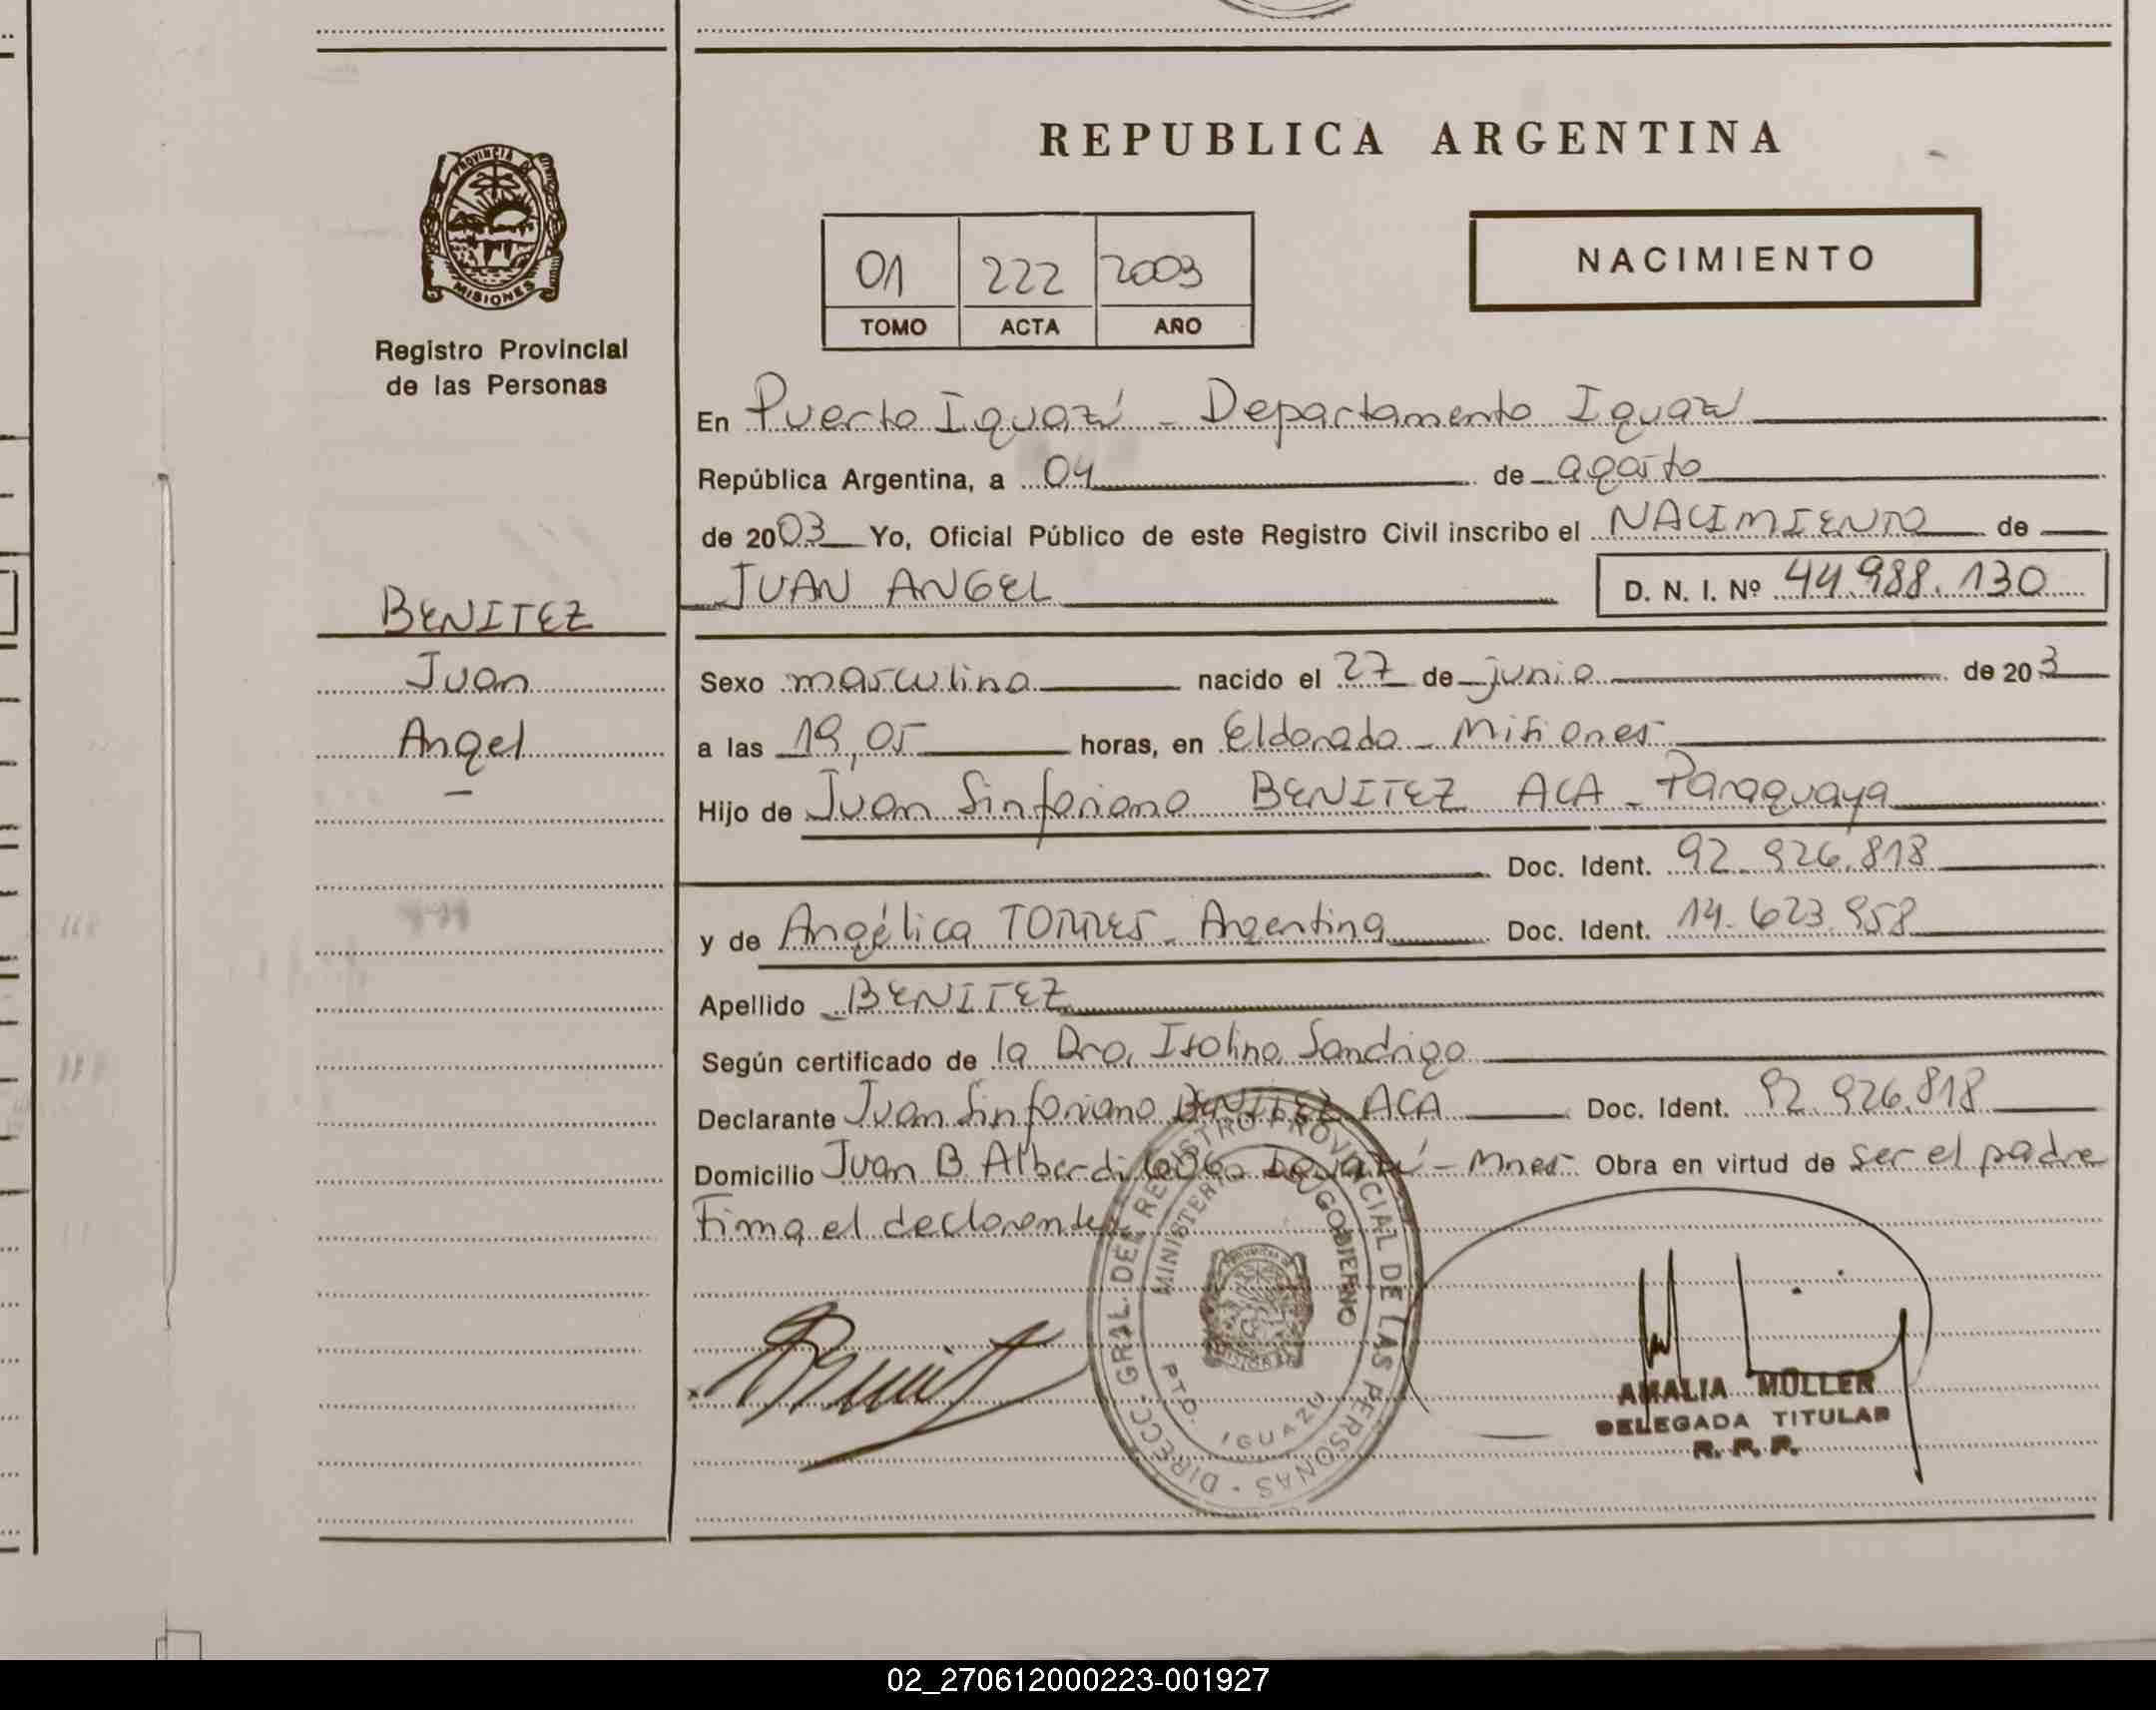 REPUBLICA ARGENTINA
PROVINCIA DE
MISIONES
Registro Provincial
de las Personas
NACIMIENTO
01 222 2003
TOMO ACTA AÑO
En Puerto Iguazú - Departamento Iguazú
República Argentina, a 04 de agosto
de 2003 Yo, Oficial Público de este Registro Civil inscribo el NACIMIENTO de
JUAN ANGEL
D. N. I. Nº 44.988.130
BENITEZ
Juan
Angel
-
Sexo masculino nacido el 27 de junio de 20 3
a las 19,05 horas, en Eldorado - Misiones
Hijo de Juan Sinforiano BENITEZ ACA - Paraguaya
Doc. Ident. 92.926.818
y de Angélica TORRES - Argentina Doc. Ident. 14.623.958
Apellido BENITEZ
Según certificado de la Dra. Isolina Sandrigo
Declarante Juan Sinforiano BENITEZ ACA Doc. Ident. 92.926.818
Domicilio Juan B. Alberdi Iguazú - Mnes Obra en virtud de ser el padre
Firma el declarante
DIRECC. GRAL. DEL REGISTRO PROVINCIAL DE LAS PERSONAS
MINISTERIO GOBIERNO
PTO. IGUAZU
AMALIA MULLER
DELEGADA TITULAR
R. P. P.
02_270612000223-001927